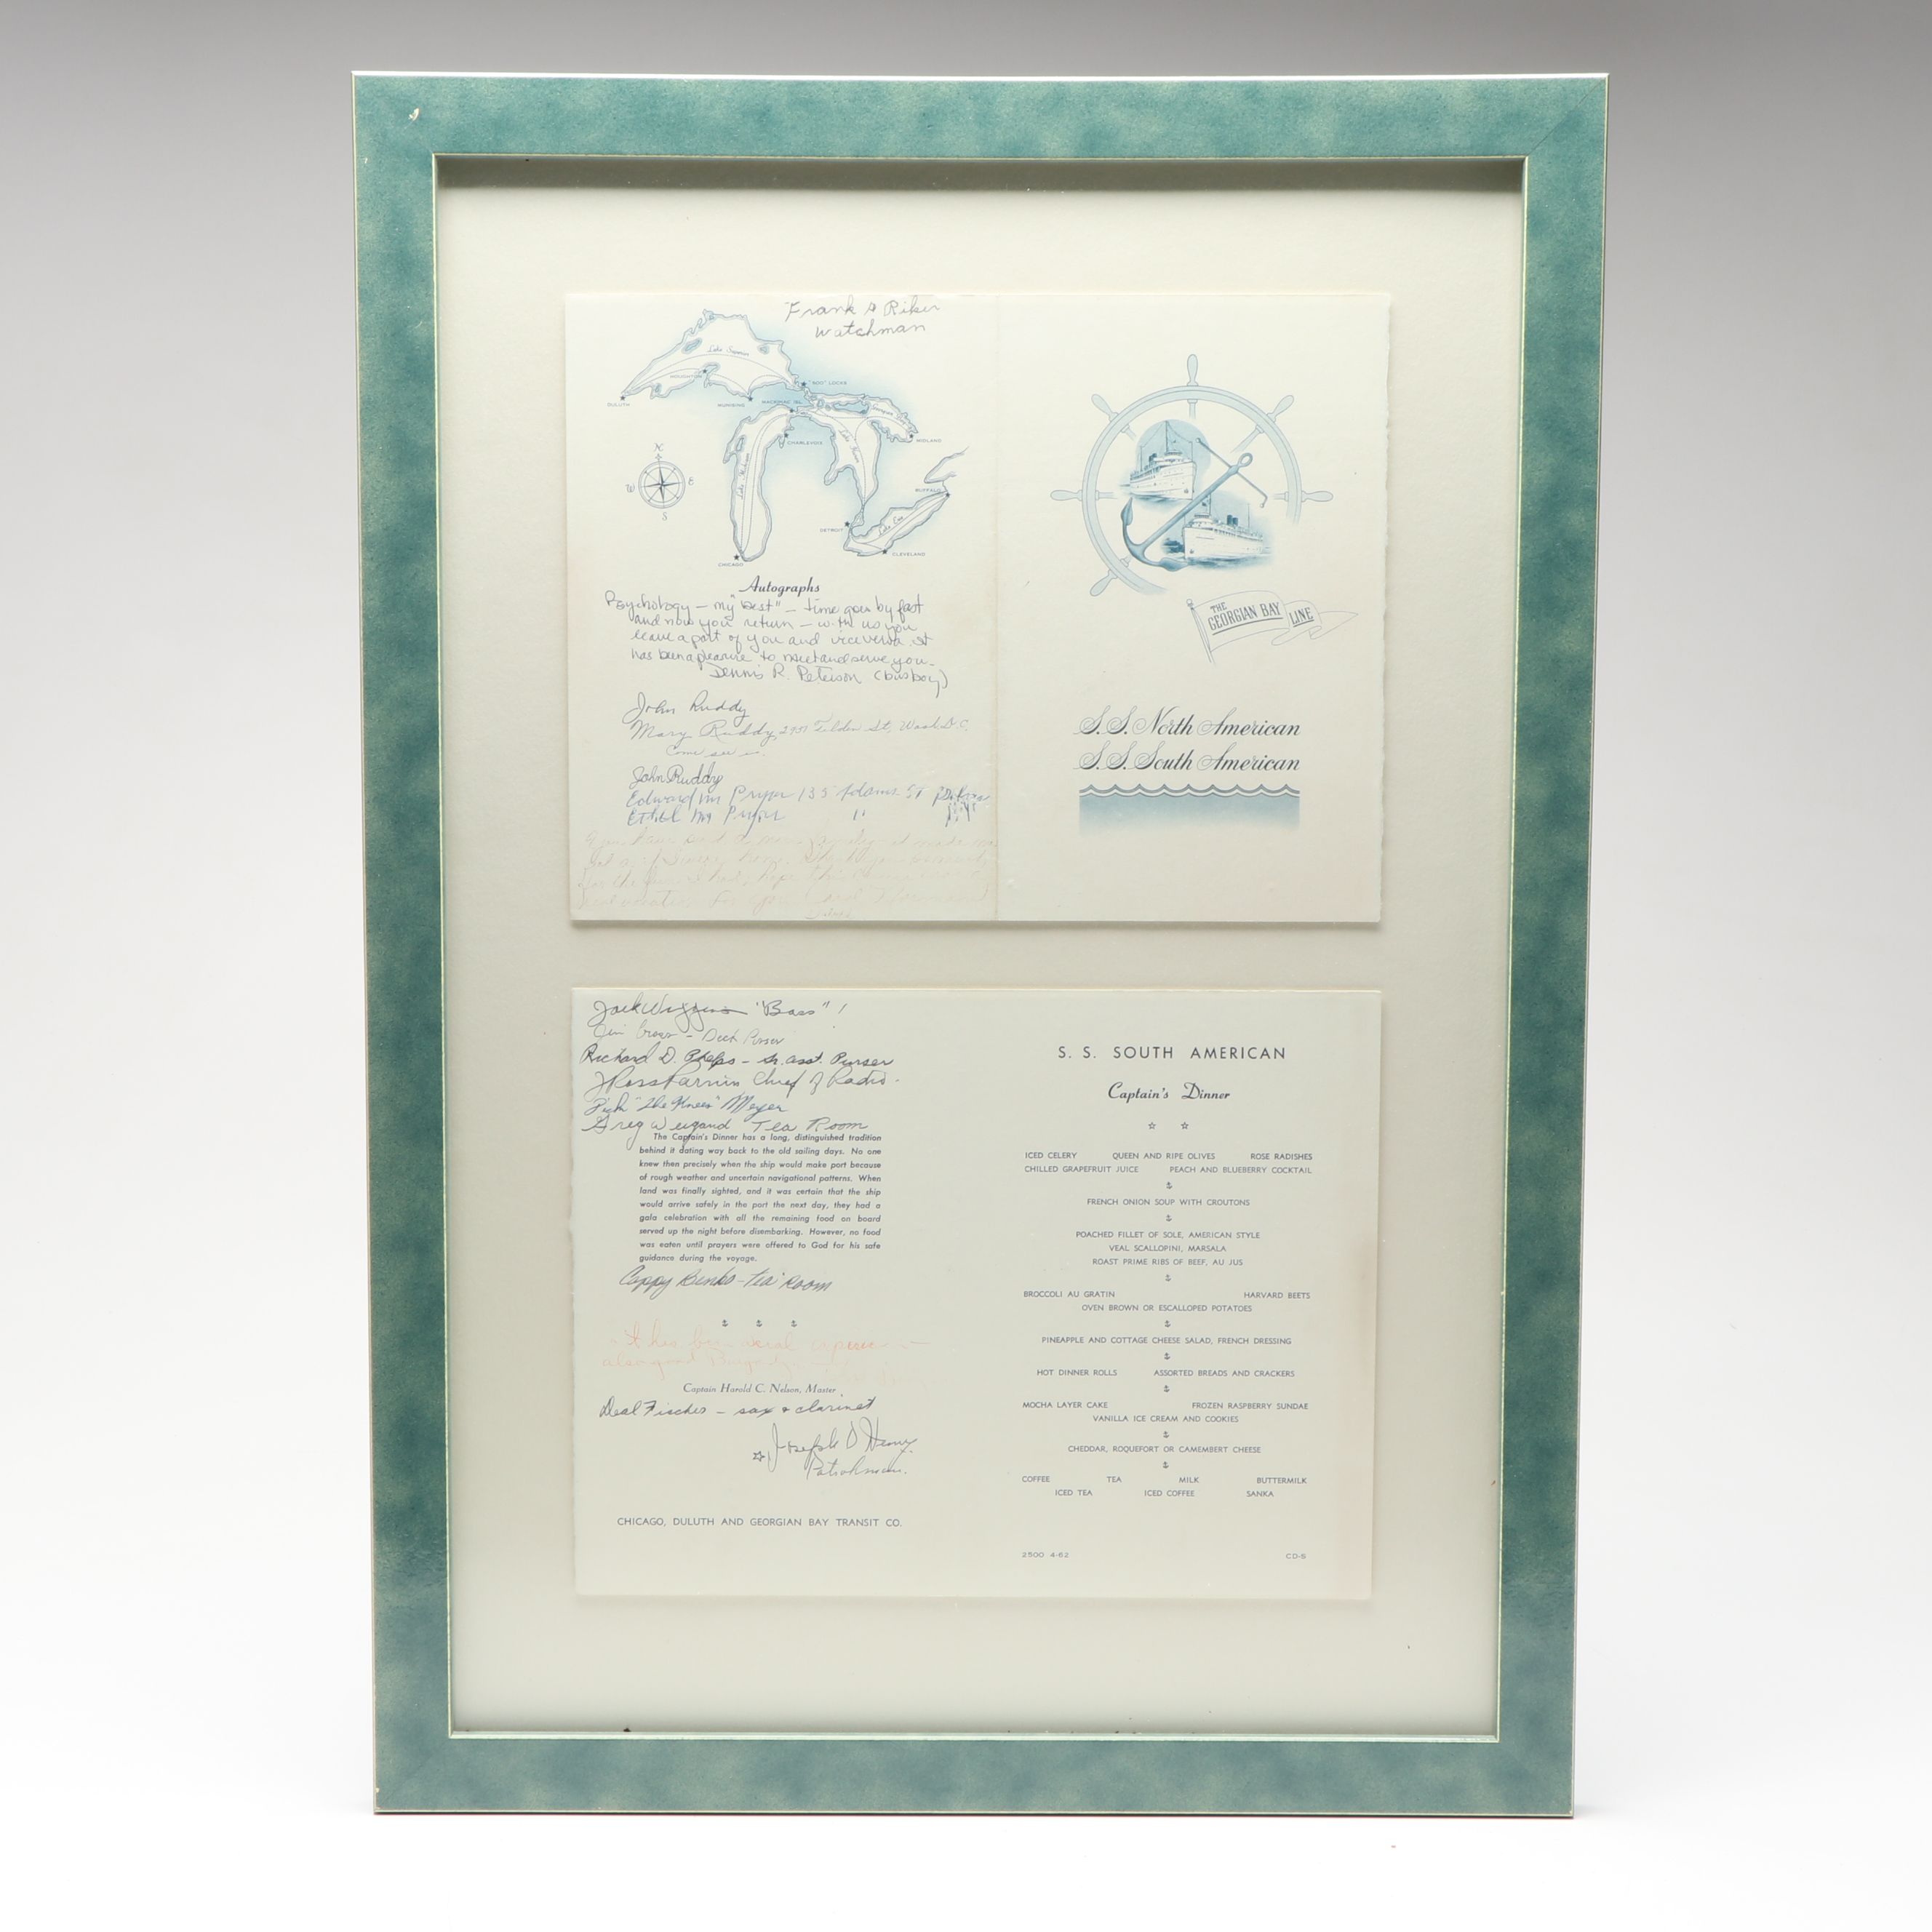 Frank A Riker
Watchman
Lake Superior
HOUGHTON
"SOO" LOCKS
DULUTH
MUNISING
MACKINAC ISL.
CHARLEVOIX
MIDLAND
Lake Michigan
Lake Huron
N
W
E
S
BUFFALO
DETROIT
Lake Erie
CLEVELAND
CHICAGO
Autographs
Psychology - my "best" - time goes by fast
and now you return - with us you
leave a part of you and vice versa. It
has been a pleasure to meet and serve you-
Dennis R. Peterson (busboy)
John Ruddy
Mary Ruddy 2937 Tilden St, Wash D.C.
Come see us.
John Ruddy
Edward 135 Adams St
Ethel "
THE
GEORGIAN BAY
LINE
S.S. North American
S.S. South American
Jack Wiggins "Bass"!
Jim - Deck Purser
Richard D. Phelps - Sr. asst. Purser
J Ross Parnin Chief of Radio.
"The Knees" Meyer
Greg Weigand Tea Room
The Captain's Dinner has a long, distinguished tradition
behind it dating way back to the old sailing days. No one
knew then precisely when the ship would make port because
of rough weather and uncertain navigational patterns. When
land was finally sighted, and it was certain that the ship
would arrive safely in the port the next day, they had a
gala celebration with all the remaining food on board
served up the night before disembarking. However, no food
was eaten until prayers were offered to God for his safe
guidance during the voyage.
Cappy Binks - tea room
It has been
Captain Harold C. Nelson, Master
- sax & clarinet
Joseph D Henry
Patrolman.
CHICAGO, DULUTH AND GEORGIAN BAY TRANSIT CO.
S. S. SOUTH AMERICAN
Captain's Dinner
ICED CELERY QUEEN AND RIPE OLIVES ROSE RADISHES
CHILLED GRAPEFRUIT JUICE PEACH AND BLUEBERRY COCKTAIL
FRENCH ONION SOUP WITH CROUTONS
POACHED FILLET OF SOLE, AMERICAN STYLE
VEAL SCALLOPINI, MARSALA
ROAST PRIME RIBS OF BEEF, AU JUS
BROCCOLI AU GRATIN HARVARD BEETS
OVEN BROWN OR ESCALLOPED POTATOES
PINEAPPLE AND COTTAGE CHEESE SALAD, FRENCH DRESSING
HOT DINNER ROLLS ASSORTED BREADS AND CRACKERS
MOCHA LAYER CAKE FROZEN RASPBERRY SUNDAE
VANILLA ICE CREAM AND COOKIES
CHEDDAR, ROQUEFORT OR CAMEMBERT CHEESE
COFFEE TEA MILK BUTTERMILK
ICED TEA ICED COFFEE SANKA
2500 4-62 CD-S